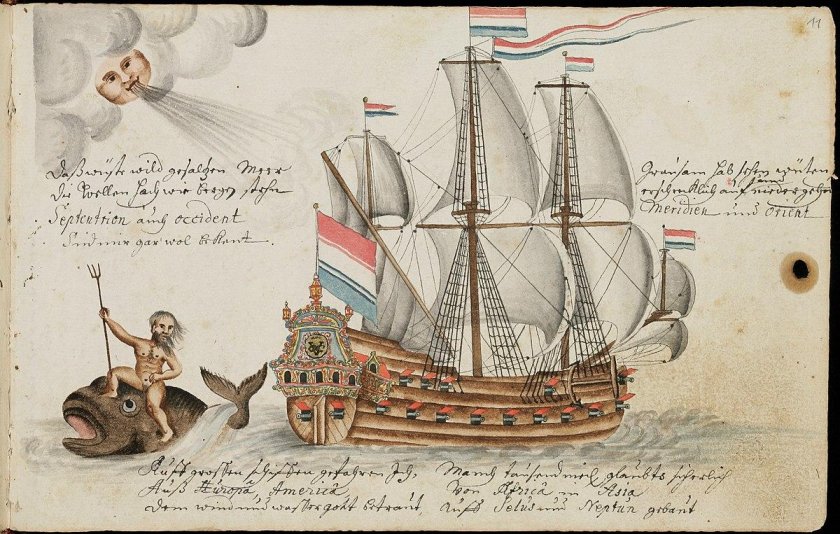 11
Daß wüste wild gesaltzen Meer
Die Wellen hoch wie bergen stehn
Septentrion auch occident
Sind mir gar wol bekent.
Grausam hab sehen wüten
erschröcklich auf und nieder gehen
Meridien und Orient
Auff grossen schiffen gefahren Ich,
Auß Europa, America
dem wind und wasser gott
Manch tausend meil glaubts sicherlich
Von Africa in Asia
Auff und Neptun gebaut